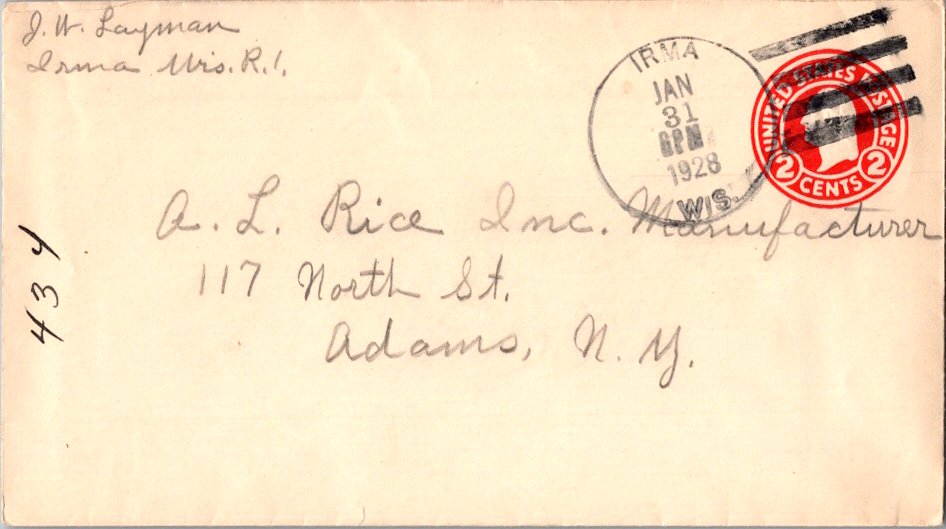 J. W. Layman
Irma Wis. R.1.
IRMA
JAN
31
6PM
1928
WIS.
UNITED STATES POSTAGE
2 CENTS 2
A. L. Rice Inc. Manufacturer
117 North St.
Adams, N. Y.
434